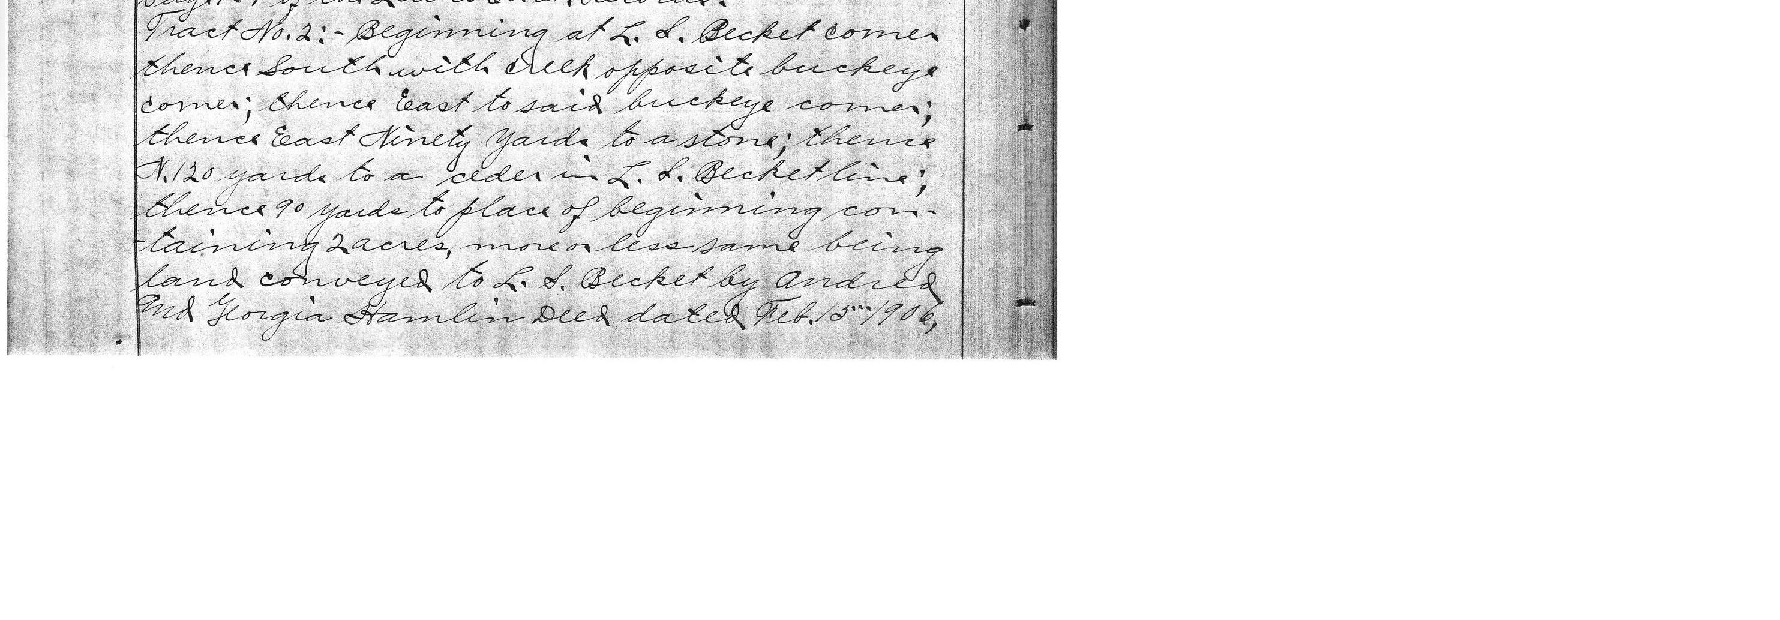 Tract No. 2:- Beginning at L. S. Becket corner
thence South with creek opposite buckeye
corner; thence East to said buckeye corner;
thence East Ninety yards to a stone; thence
N. 120 yards to a ceder in L. S. Becket line;
thence 90 yards to place of beginning con-
taining 2 acres, more or less same being
land conveyed to L. S. Becket by
and Georgia Hamlin Deed dated Feb. 1906,